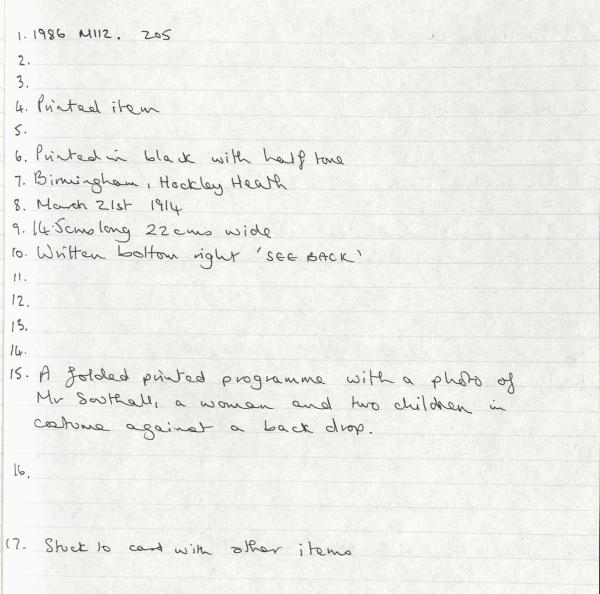 1. 1986 M112. 205
2.
3.
4. Printed item
5.
6. Printed in black with half tone
7. Birmingham, Hockley Heath
8. March 21st 1914
9. 14.5cms long 22 cms wide
10. Written bottom right 'SEE BACK'
11.
12.
13.
14.
15. A folded printed programme with a photo of
Mr Southall, a woman and two children in
costume against a back drop.
16.
17. Stuck to card with other items